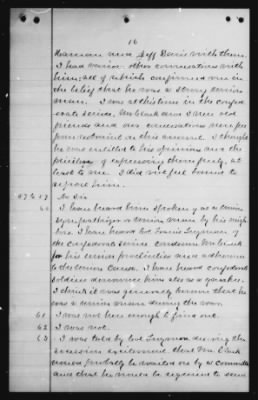 16
Harman and Jeff Davis with them.
I had various other conversations with
him; all of which confirmed me in
the belief that he was a strong union
man. I was at this time in the confed-
erate service. Mr Clark and I were old
friends and our conversations were per-
from restraint on this account. I thought
he was entitled to his opinions and the
privilege of expressing them freely, at
least to me. I did not feel bound to
report him.
47 to 59 No Sir
60 I have heard him spoken of as a union
sympathizer or union man by his neigh-
bors. I have heard Col Francis
of the confederate service condemn Mr Clark
for his union proclivities and adherence
to the union cause. I have heard confederate
soldiers denounce him also as a quaker.
I think it was generally known that he
was a union man during the war.
61 I was not here enough to find out.
62 I was not.
63 I was told by Col during the
secession excitement that Mr Clark
would probably be waited on by a committee
and that he would be required to